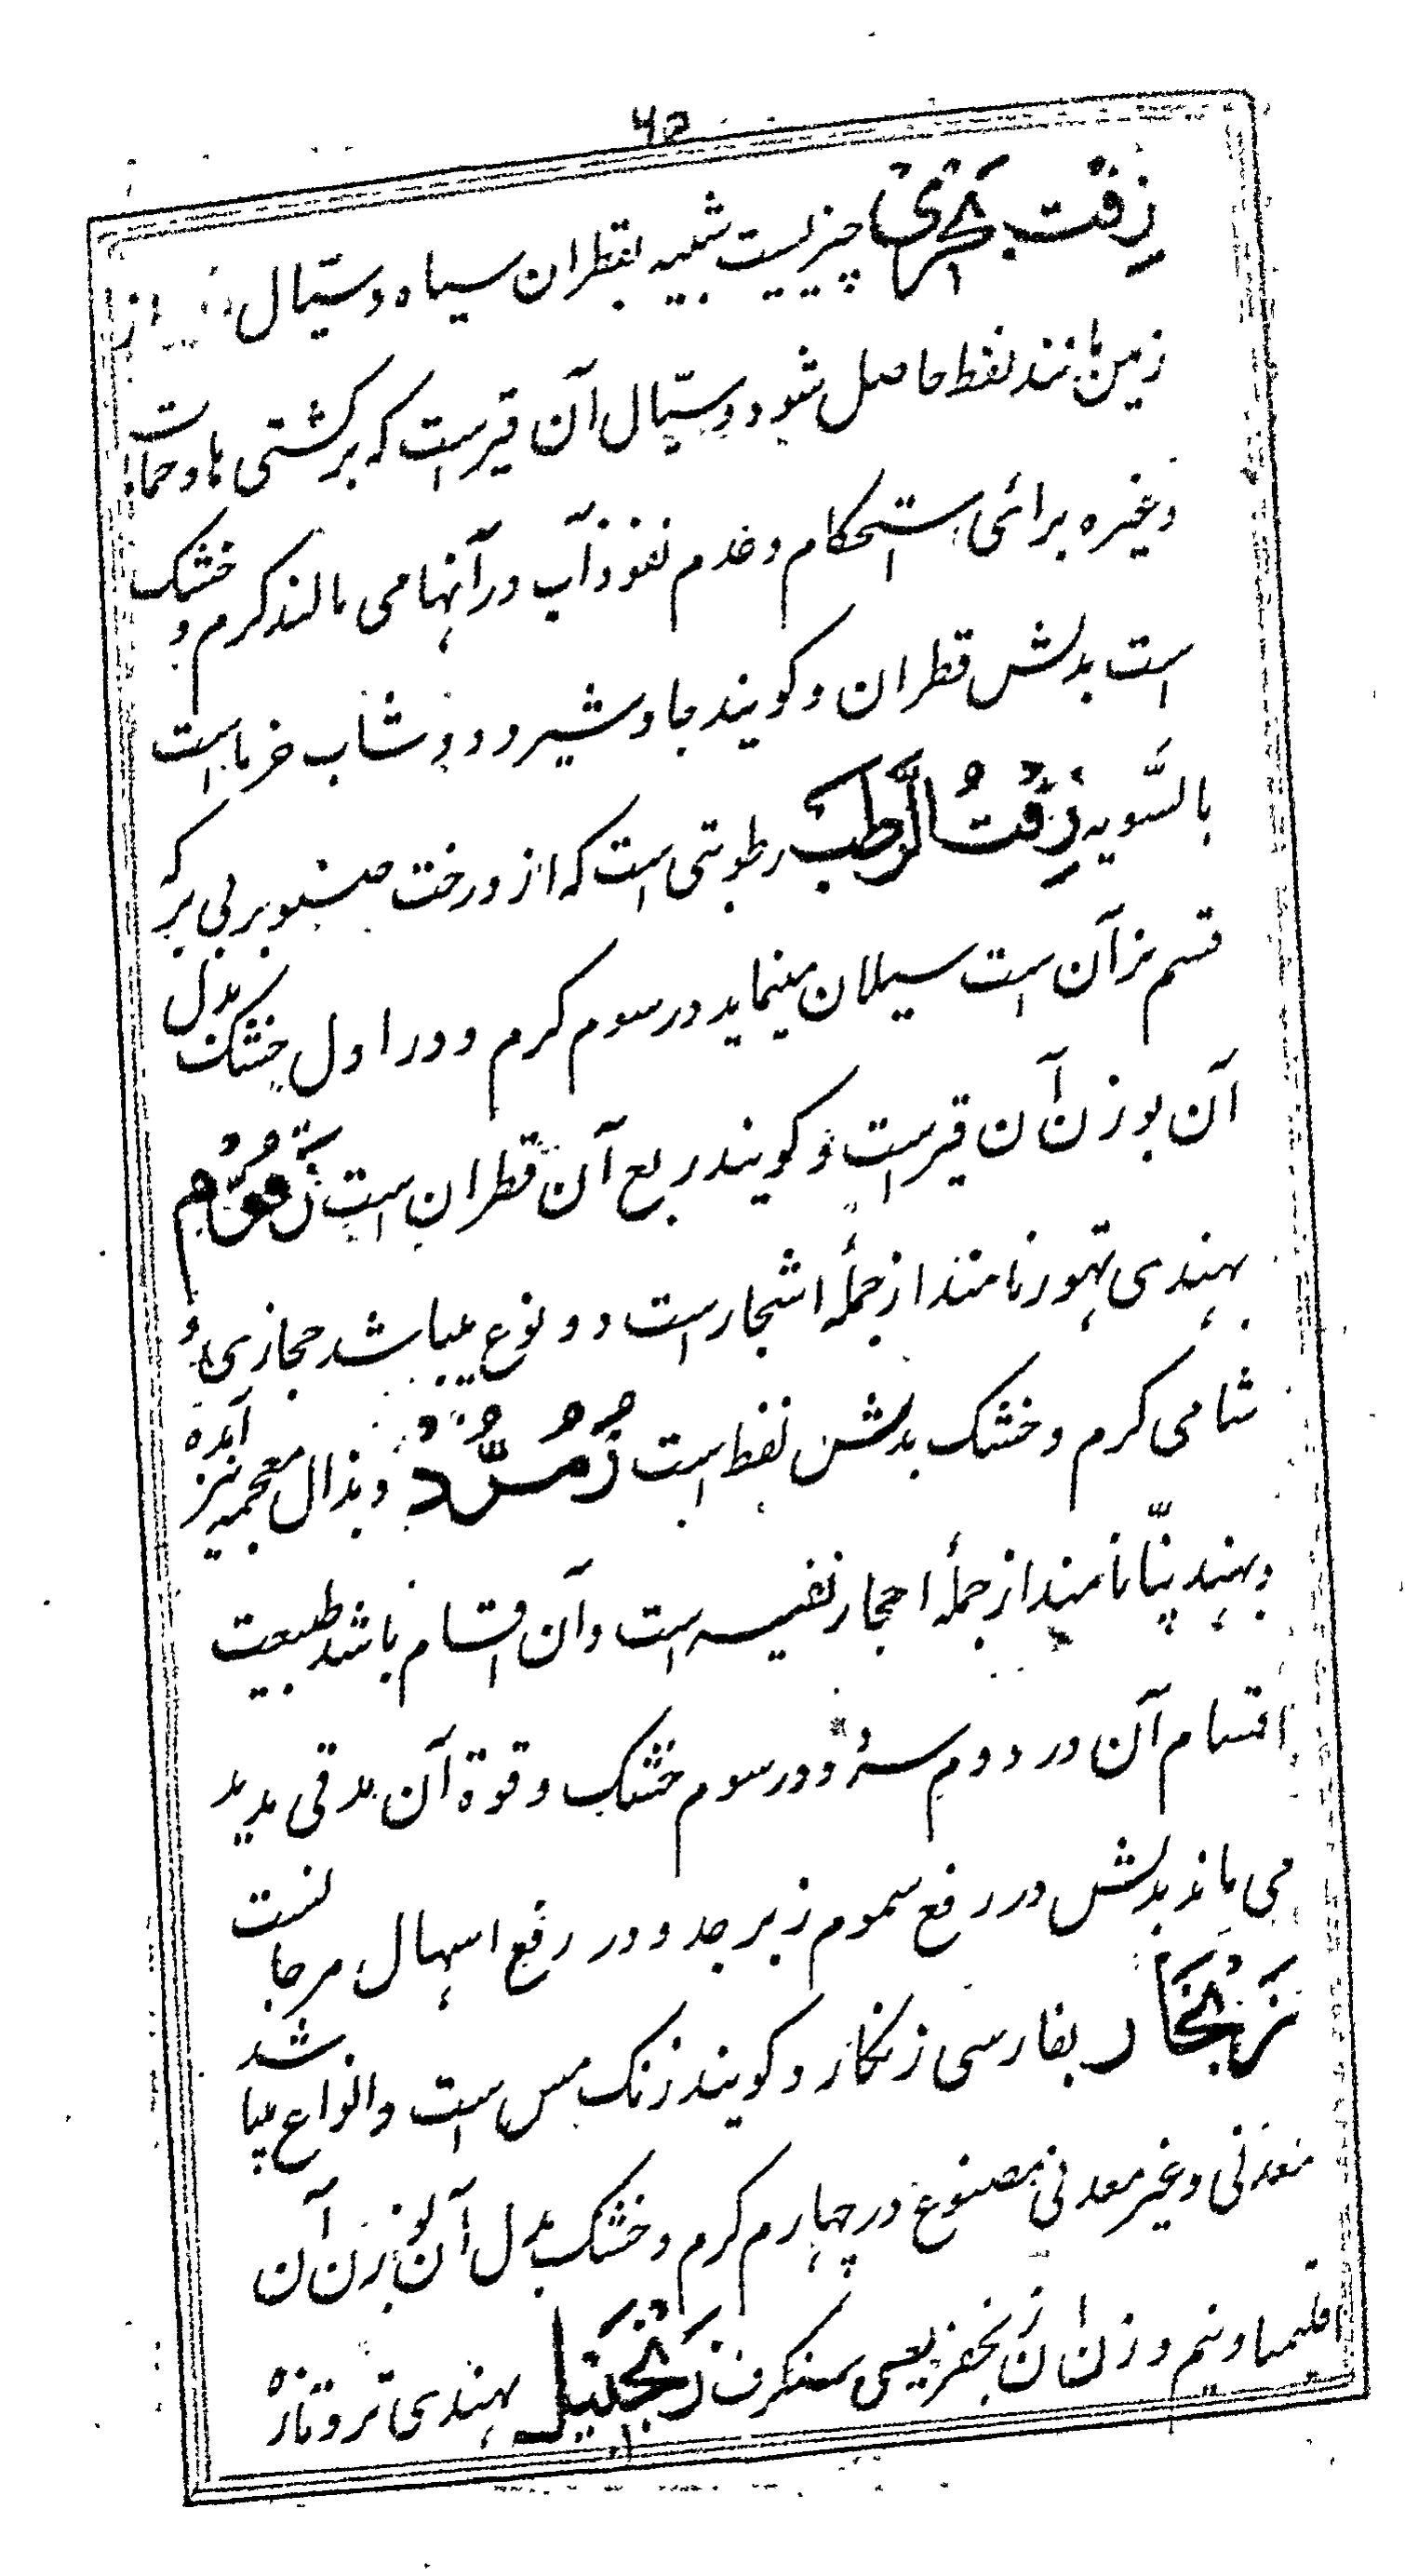 ۶۵
زِفْت بَحْرِیْ چیزیست شبیه بقطران سیاه و سیّال از
زمین مانند نفط حاصل شود و سیّال آن قیرست که بر کشتی ها و حمامات
وغیره برائی استحکام و عدم نفوذ آب در آنها می مالند کرم و خشک
است بدلش قطران و کویند جاوشیر و دوشاب خرماست
بالسّویه زِفْتُ الرَّطب رطوبتی است که از درخت صنوبر بی بر که
قسم نر آن است سیلان مینماید در سوم کرم و در اول خشک بدل
آن بوزن آن قیرست و کویند ربع آن قطران است زَقُّوْم
بهندی تهور نامند از جملهٔ اشجارست دو نوع میباشد حجازی و
شامی کرم و خشک بدلش نفط است زُمُرُّدْ و بذال معجمه نیز آمده
وبهند پنّا نامند از جملهٔ احجار نفیسه است و آن اقسام باشد طبیعت
اقسام آن در دوم سرد و در سوم خشک و قوة آن بدقی مدید
می ماند بدلش در رفع سموم زبرجد و در رفع اسهال مرجانست
زَنْجَار بفارسی زنکار و کویند زنک مس است و انواع میباشد
معدنی و غیر معدنی مصنوع در چهارم کرم و خشک بدل آن بوزن آن
اقلیمیا و نیم وزن آن زنجفر یعنی سنکرف زَنْجَبِیْل بهندی تر و تازه